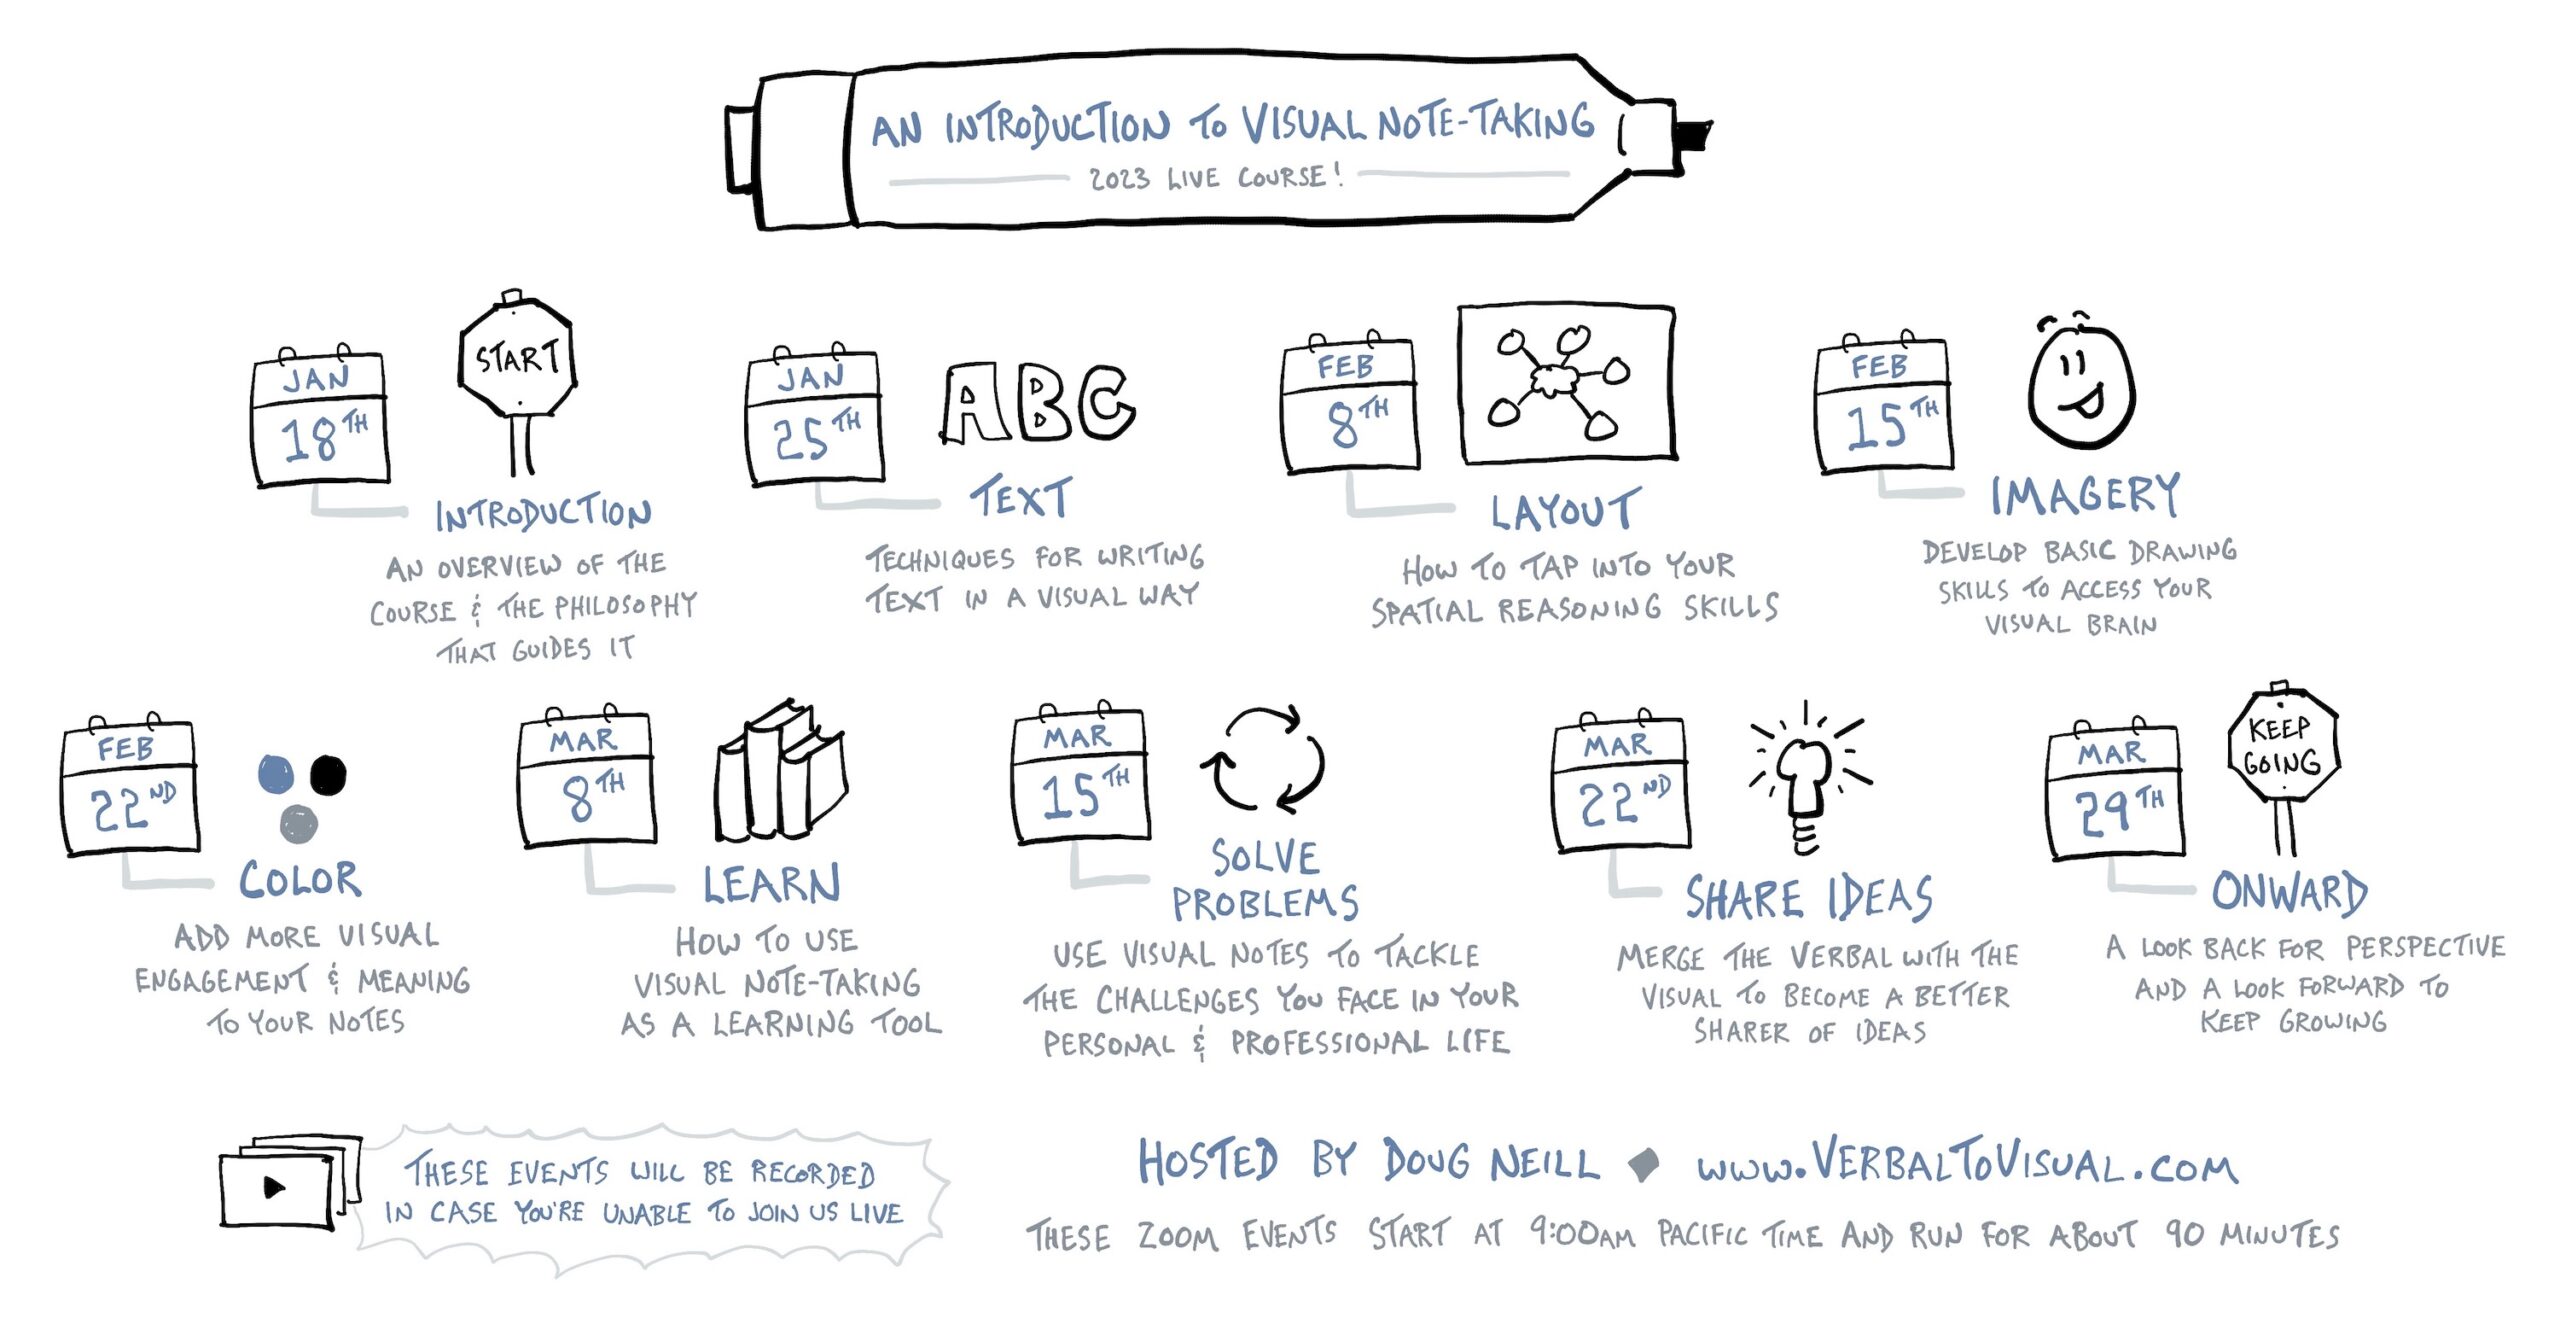 AN INTRODUCTION TO VISUAL NOTE-TAKING
2023 LIVE COURSE!
JAN
18TH
START
INTRODUCTION
AN OVERVIEW OF THE
COURSE & THE PHILOSOPHY
THAT GUIDES IT
JAN
25TH
ABC
TEXT
TECHNIQUES FOR WRITING
TEXT IN A VISUAL WAY
FEB
8TH
LAYOUT
HOW TO TAP INTO YOUR
SPATIAL REASONING SKILLS
FEB
15TH
IMAGERY
DEVELOP BASIC DRAWING
SKILLS TO ACCESS YOUR
VISUAL BRAIN
FEB
22ND
COLOR
ADD MORE VISUAL
ENGAGEMENT & MEANING
TO YOUR NOTES
MAR
8TH
LEARN
HOW TO USE
VISUAL NOTE-TAKING
AS A LEARNING TOOL
MAR
15TH
SOLVE
PROBLEMS
USE VISUAL NOTES TO TACKLE
THE CHALLENGES YOU FACE IN YOUR
PERSONAL & PROFESSIONAL LIFE
MAR
22ND
SHARE IDEAS
MERGE THE VERBAL WITH THE
VISUAL TO BECOME A BETTER
SHARER OF IDEAS
MAR
29TH
KEEP
GOING
ONWARD
A LOOK BACK FOR PERSPECTIVE
AND A LOOK FORWARD TO
KEEP GROWING
THESE EVENTS WILL BE RECORDED
IN CASE YOU'RE UNABLE TO JOIN US LIVE
HOSTED BY DOUG NEILL ◆ WWW.VERBALTOVISUAL.COM
THESE ZOOM EVENTS START AT 9:00AM PACIFIC TIME AND RUN FOR ABOUT 90 MINUTES